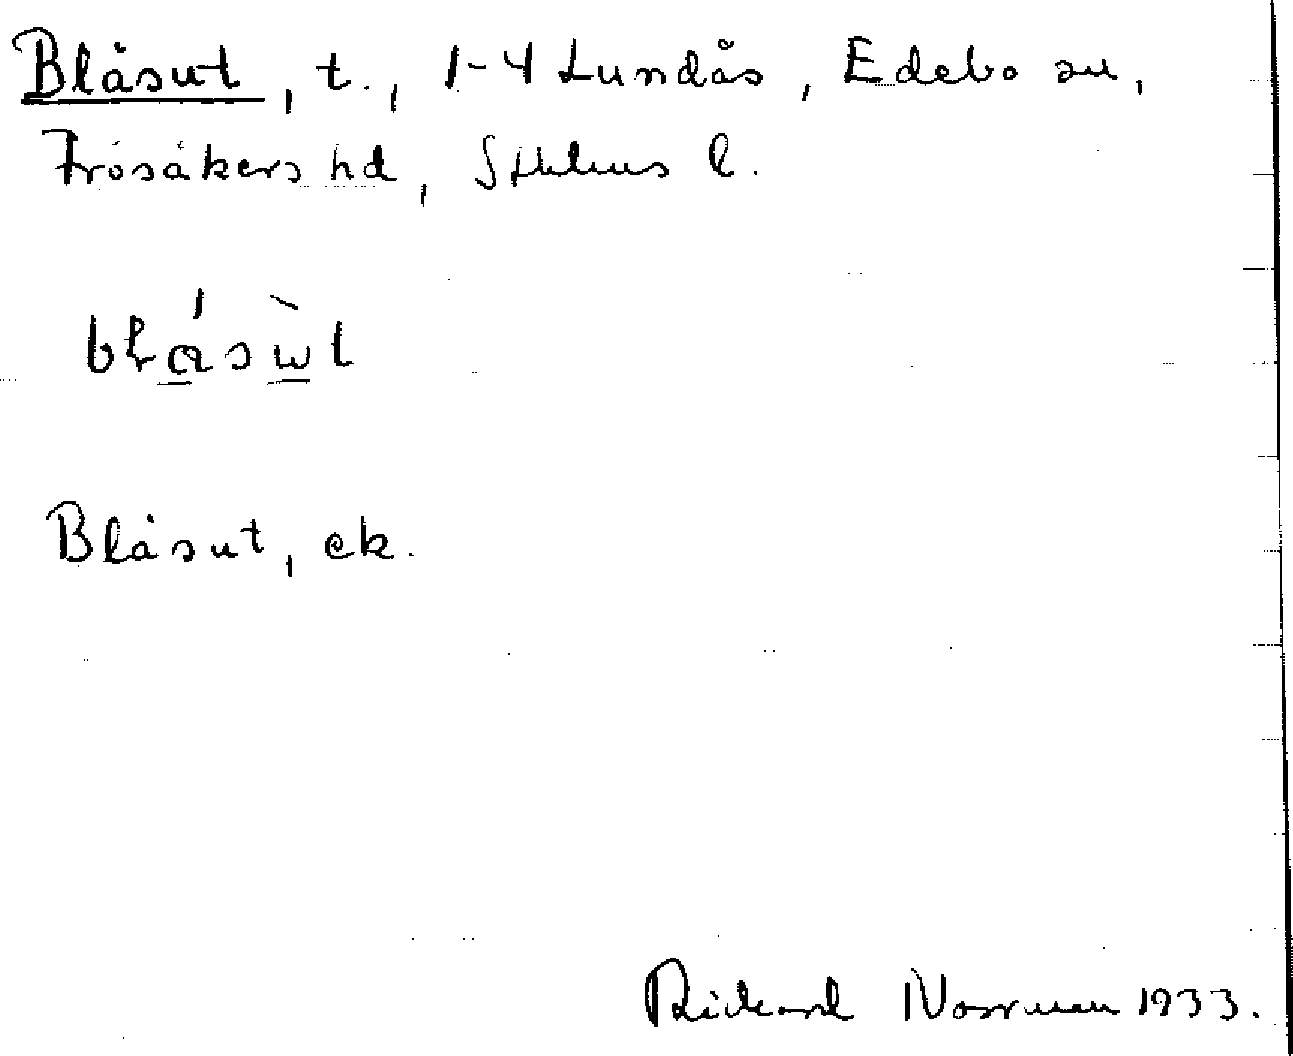 Blåsut, t., 1-4 Lundås, Edebo sn,
Frösåkers hd, Sthlms l.
blásùt
Blåsut, ek.
Rickard Norrman 1933.